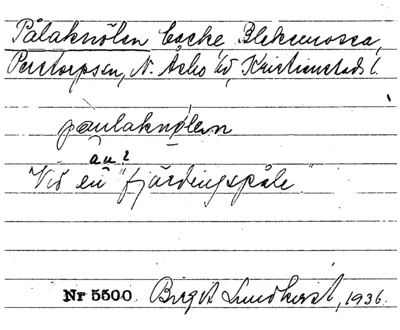 Pålaknölen backe Blekemossa,
Perstorpssn, N. Åsbo hd, Kristianstads l.
paulaknølen
än?
Vid en "fjärdingspåle"
Nr 5500 Birgit Lundkvist, 1936.